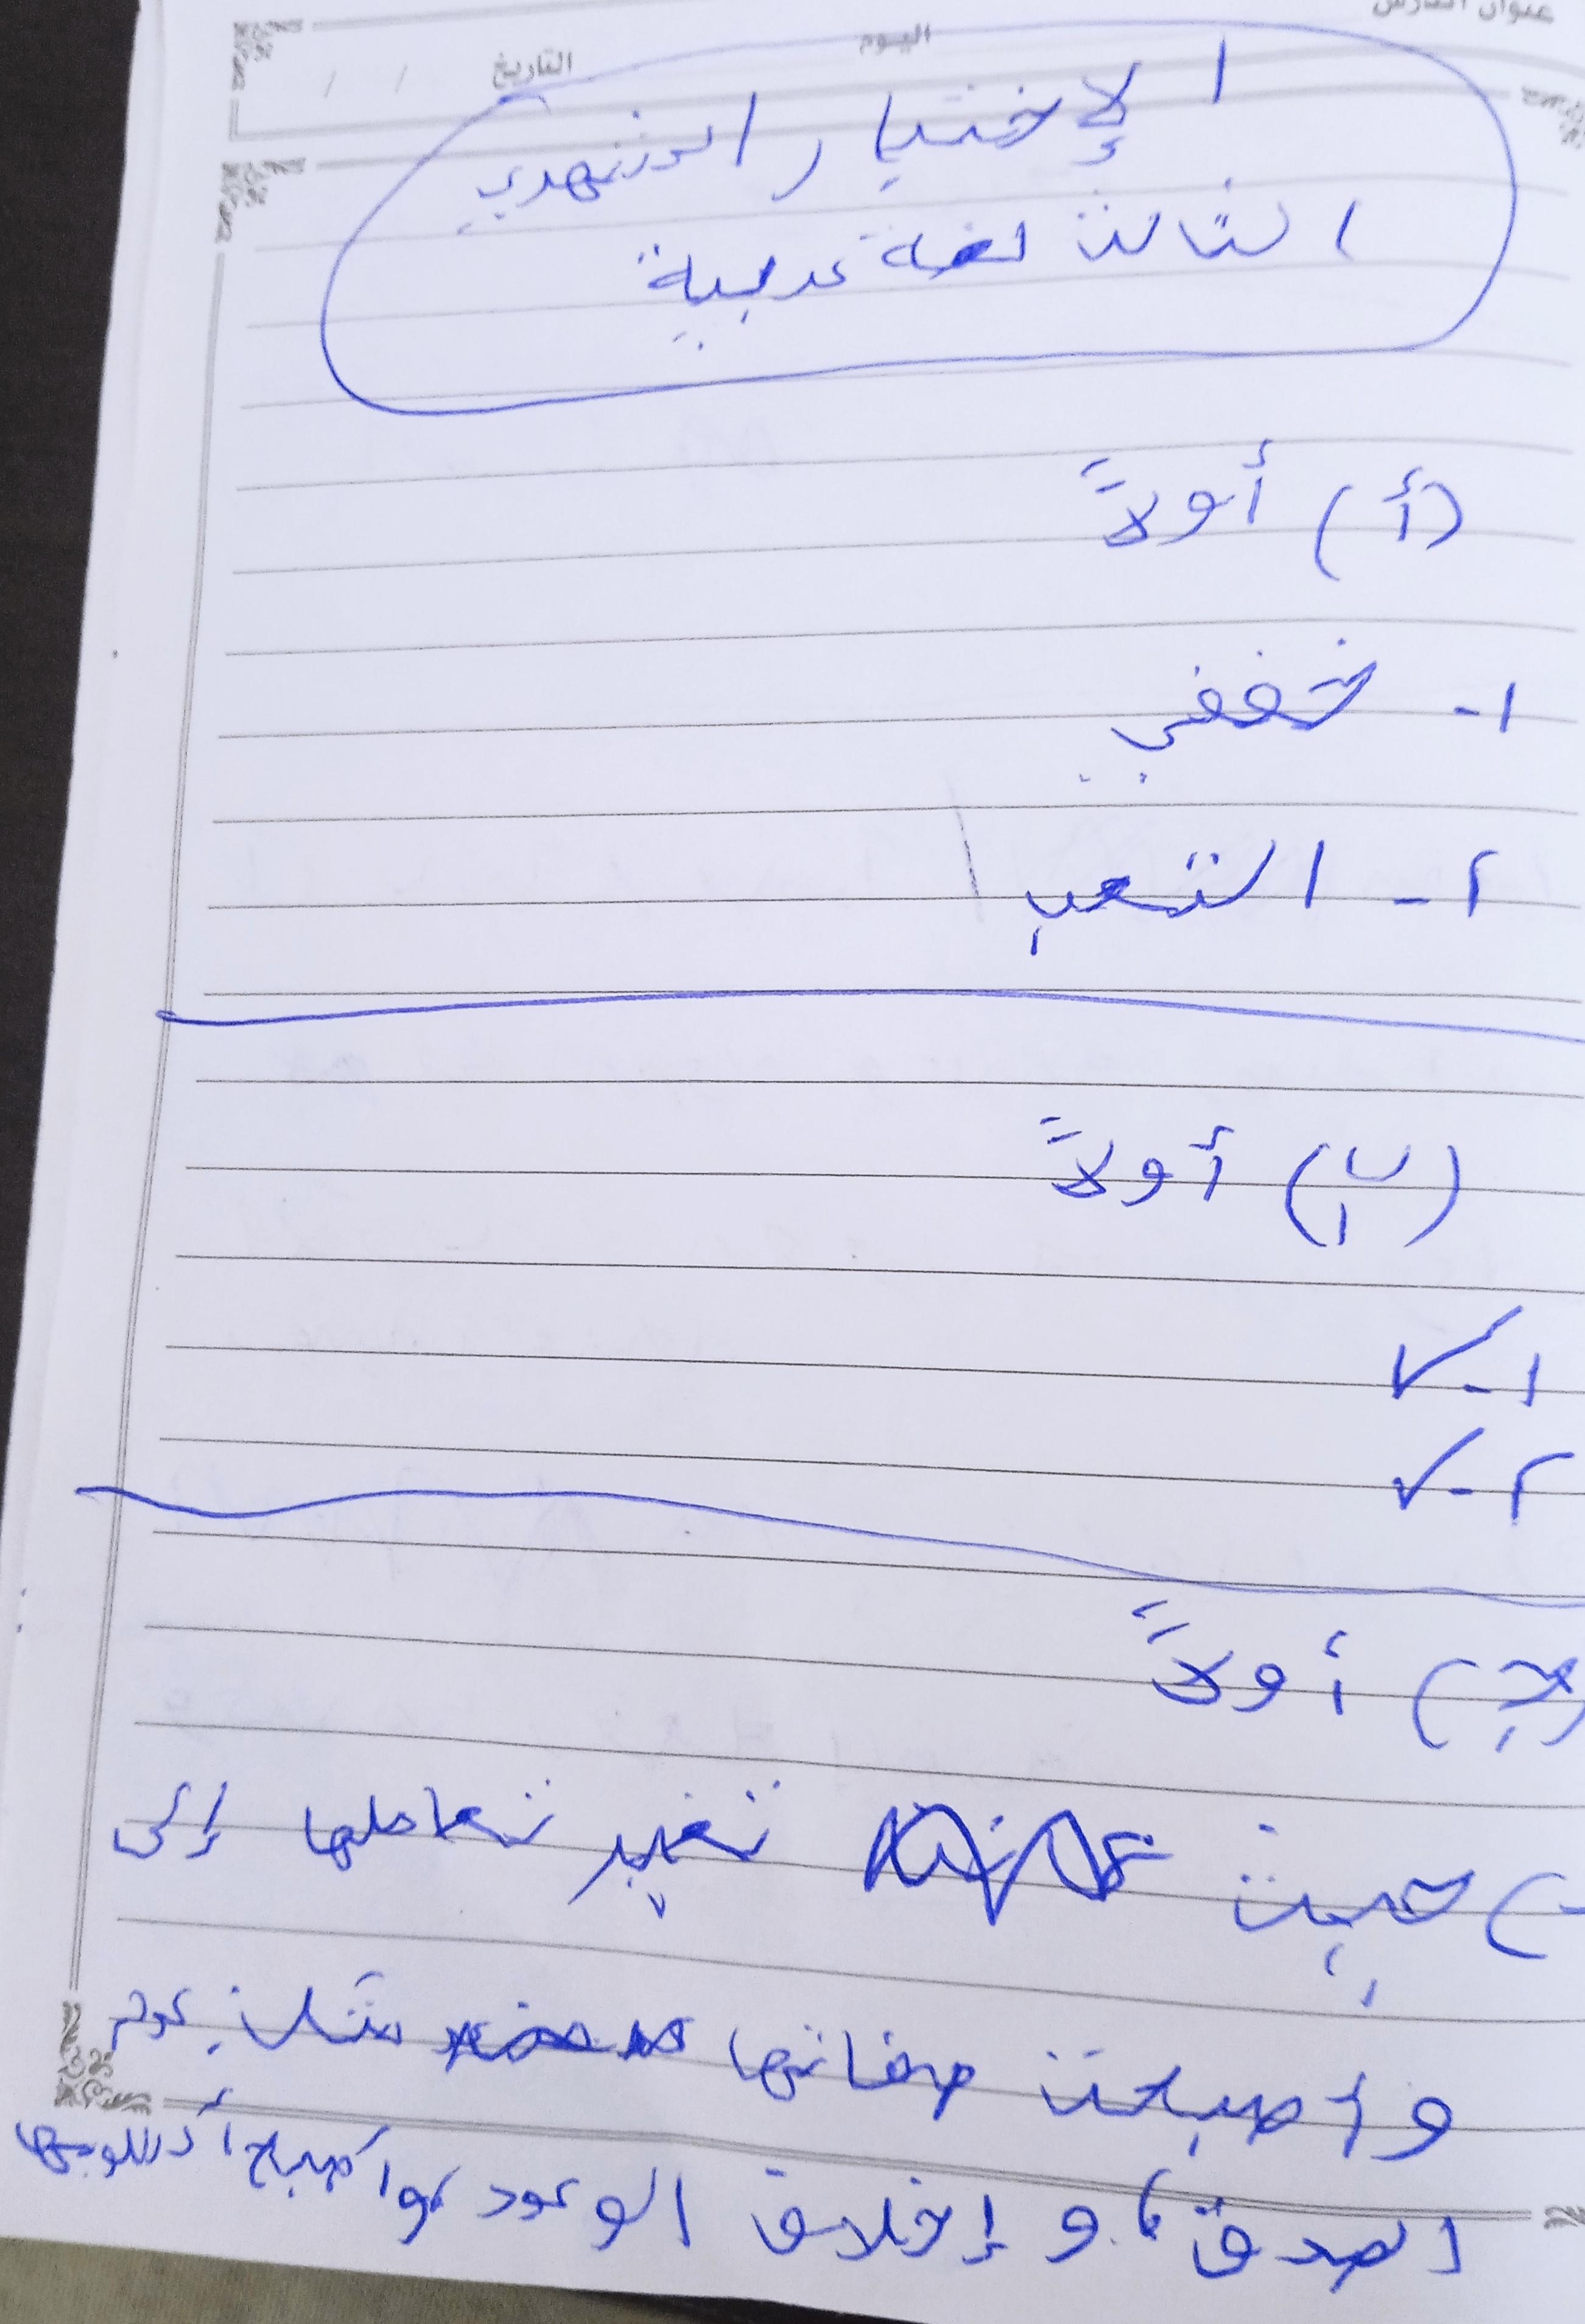 عنوان الدرس اليوم التاريخ / /
الإختبار الشهري
الثالث لغة عربية
(أ) أولاً
١- خففي
٢- التعب
(ب) أولاً
١- ✓
٢- ✓
(جـ) أولاً
حيث تغير تعاملها إلى
وأصبحت صفاتها مثل: عدم
الصدق، و إخلاق الوعود، وأصبح أسلوبها